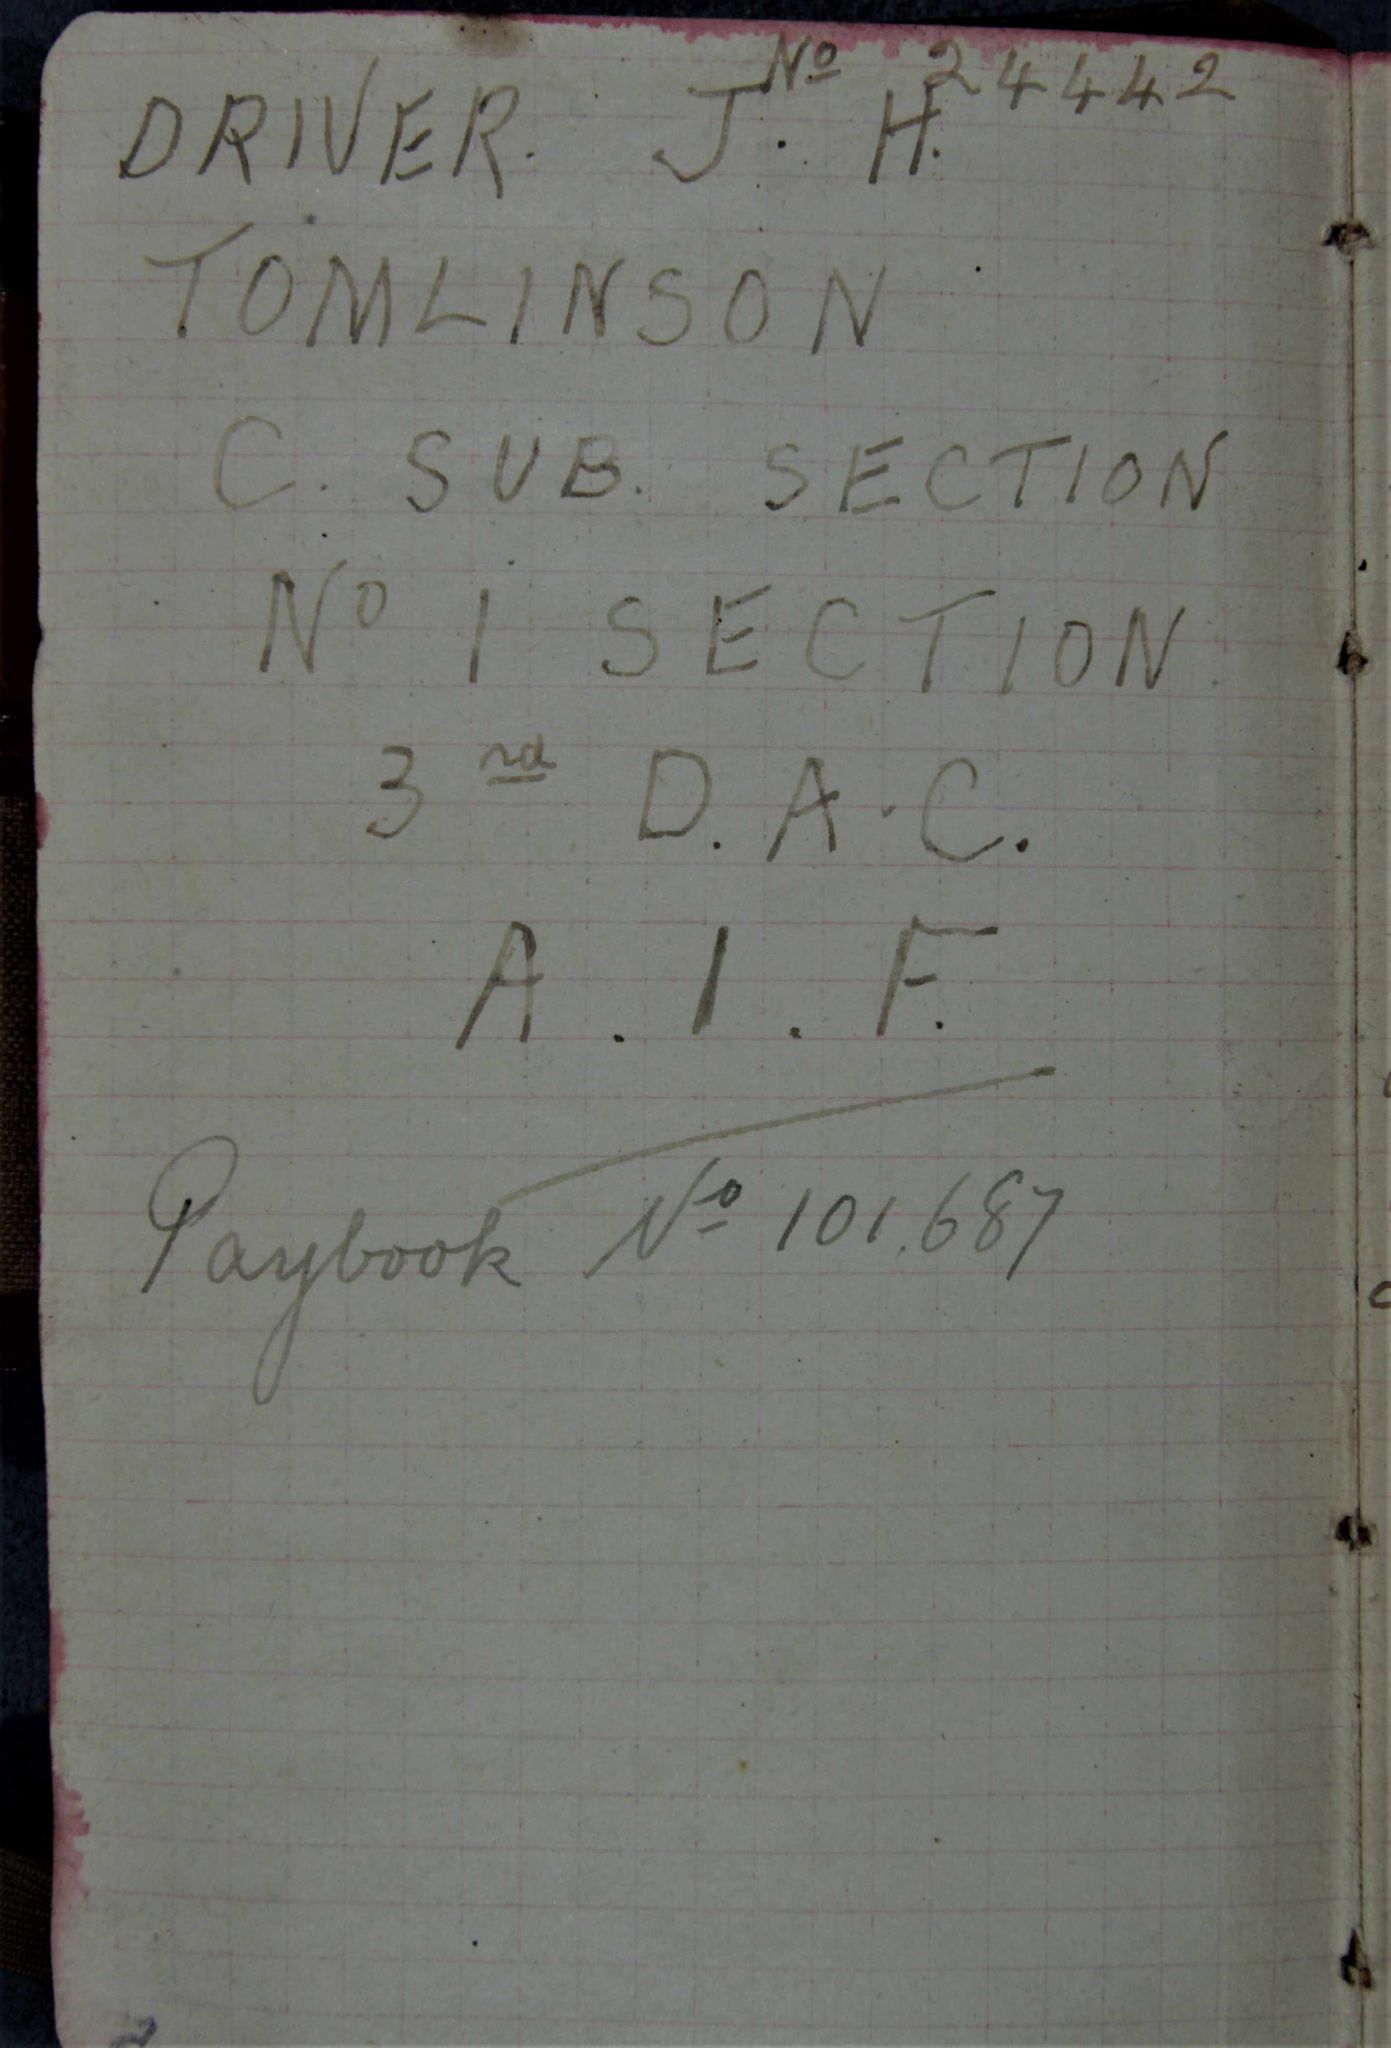 Nº 24442
DRIVER. J. H.
TOMLINSON
C. SUB. SECTION
Nº 1 SECTION.
3rd D.A.C.
A.I.F.
Paybook Nº 101,687